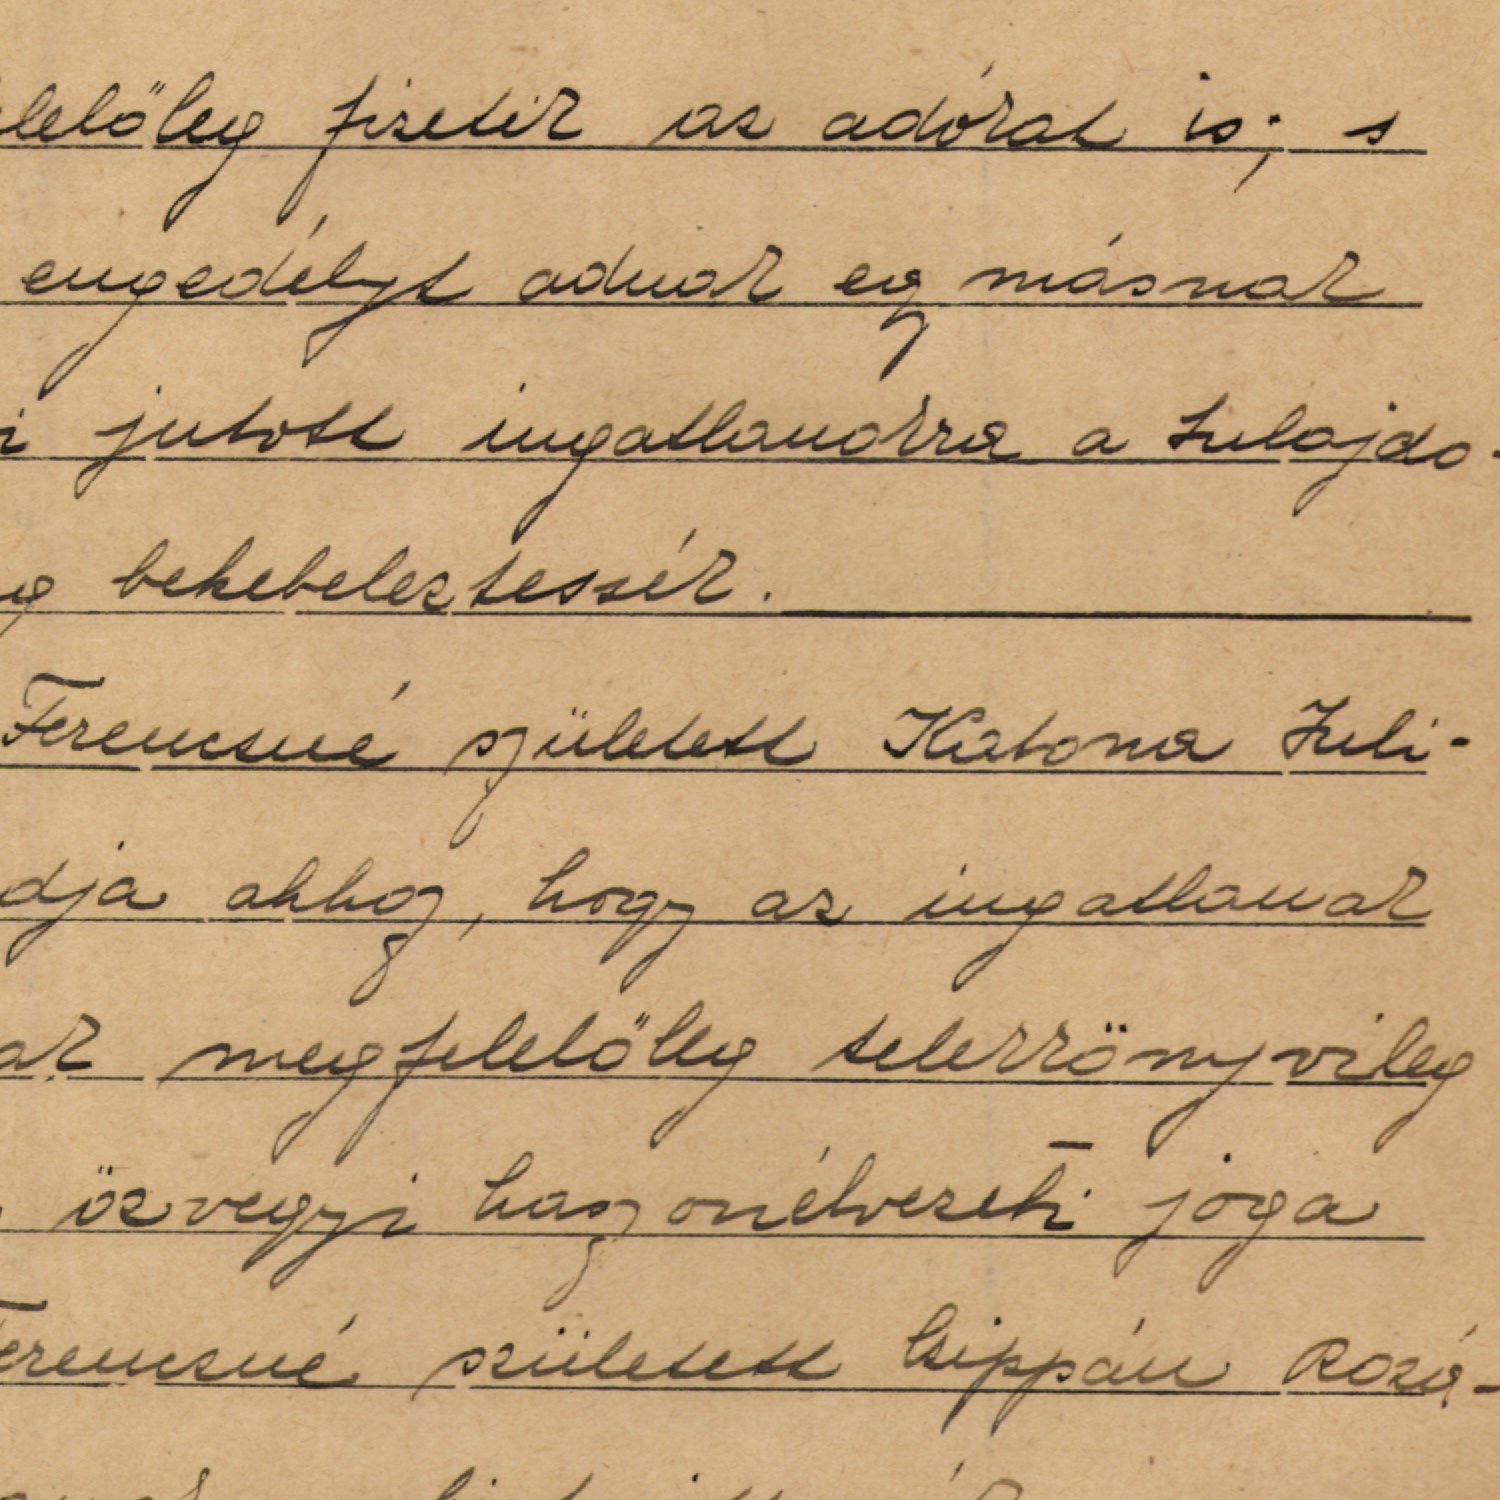 lelőleg fizetik az adókat is; s
engedélyt adnak eg másnak
i jutott ingatlanokra a tulajdo-
g bekebeleztessék.
Ferencné született Katona Juli-
dja ahhoz, hogy az ingatlanak
ak megfelelőleg telekkönyvileg
özvegyi haszonélvezeti joga
Ferencné született Csippán Rozá-